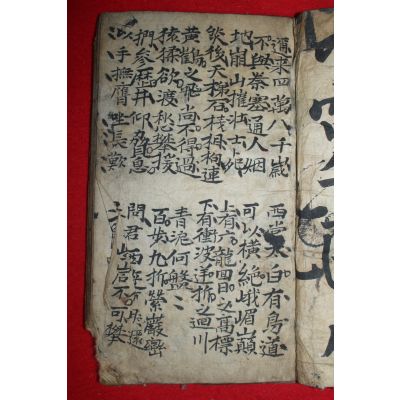 邇來四萬八千歲
不與秦塞通人烟
西當太白有鳥道
可以橫絶峨嵋巔
地崩山摧壯士死
然後天梯石棧相拘連
上有六龍回日之高標
下有衝波逆折之迴川
黃鶴之飛尚不得過
猿猱欲渡愁攀援
青泥何盤〻
百步九折縈巖巒
捫參歷井仰脅息
以手撫膺坐長歎
問君西還
岩不可攀